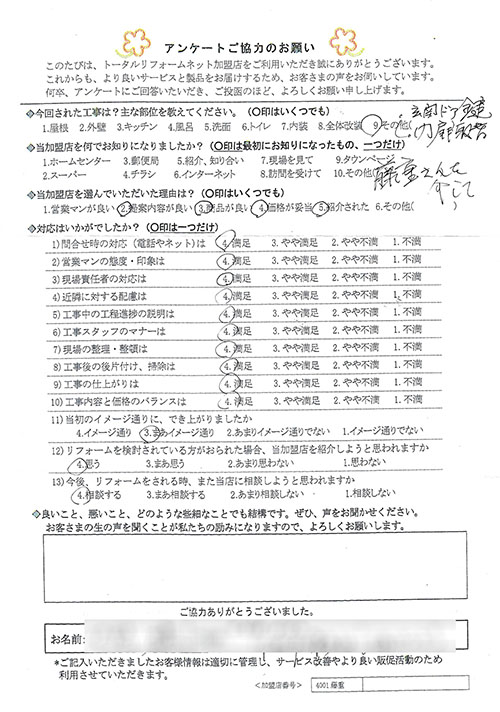 アンケートご協力のお願い
このたびは、トータルリフォームネット加盟店をご利用いただき誠にありがとうございます。
これからも、より良いサービスと製品をお届けするため、お客さまの声をお伺いしています。
何卒、アンケートにご回答いただき、ご投函のほど、よろしくお願い申し上げます。
◇今回された工事は？主な部位を教えてください。（〇印はいくつでも）
1.屋根 2.外壁 3.キッチン 4.風呂 5.洗面 6.トイレ 7.内装 8.全体改装 9.その他(
玄関ドア鍵
内扉取替
◇当加盟店を何でお知りになりましたか？（〇印は最初にお知りになったもの、一つだけ）
1.ホームセンター 3.郵便局 5.紹介、知り合い 7.現場を見て 9.タウンページ
2.スーパー 4.チラシ 6.インターネット 8.訪問を受けて 10.その他(
藤重さんを
介して )
◇当加盟店を選んでいただいた理由は？（〇印はいくつでも）
1.営業マンが良い 2.提案内容が良い 3.商品が良い 4.価格が妥当 5.紹介された 6.その他( )
◇対応はいかがでしたか？（〇印は一つだけ）
1)問合せ時の対応（電話やネット）は 4.満足 3.やや満足 2.やや不満 1.不満
2)営業マンの態度・印象は 4.満足 3.やや満足 2.やや不満 1.不満
3)現場責任者の対応は 4.満足 3.やや満足 2.やや不満 1.不満
4)近隣に対する配慮は 4.満足 3.やや満足 2.やや不満 1.不満
5)工事中の工程進捗の説明は 4.満足 3.やや満足 2.やや不満 1.不満
6)工事スタッフのマナーは 4.満足 3.やや満足 2.やや不満 1.不満
7)現場の整理・整頓は 4.満足 3.やや満足 2.やや不満 1.不満
8)工事後の後片付け、掃除は 4.満足 3.やや満足 2.やや不満 1.不満
9)工事の仕上がりは 4.満足 3.やや満足 2.やや不満 1.不満
10)工事内容と価格のバランスは 4.満足 3.やや満足 2.やや不満 1.不満
11)当初のイメージ通りに、でき上がりましたか
4.イメージ通り 3.まあイメージ通り 2.あまりイメージ通りでない 1.イメージ通りでない
12)リフォームを検討されている方がおられた場合、当加盟店を紹介しようと思われますか
4.思う 3.まあ思う 2.あまり思わない 1.思わない
13)今後、リフォームをされる時、また当店に相談しようと思われますか
4.相談する 3.まあ相談する 2.あまり相談しない 1.相談しない
◇良いこと、悪いこと、どのような些細なことでも結構です。ぜひ、声をお聞かせください。
お客さまの生の声を聞くことが私たちの励みになりますので、よろしくお願いします。
ご協力ありがとうございました。
お名前:
*ご記入いただきましたお客様情報は適切に管理し、サービス改善やより良い販促活動のため
利用させていただきます。
<加盟店番号> 4001 藤重